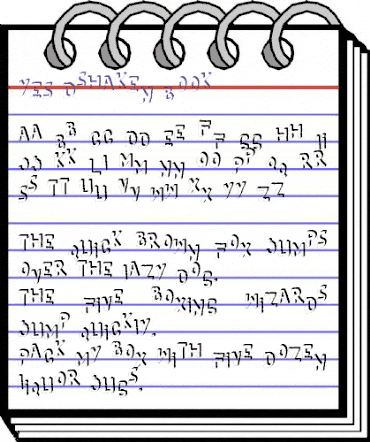 YES D SHAKEN BOOK
AA BB CC DD EE FF GG HH II
JJ KK LL MM NN OO PP QQ RR
SS TT UU VV WW XX YY ZZ
THE QUICK BROWN FOX JUMPS
OVER THE LAZY DOG.
THE FIVE BOXING WIZARDS
JUMP QUICKLY.
PACK MY BOX WITH FIVE DOZEN
LIQUOR JUGS.